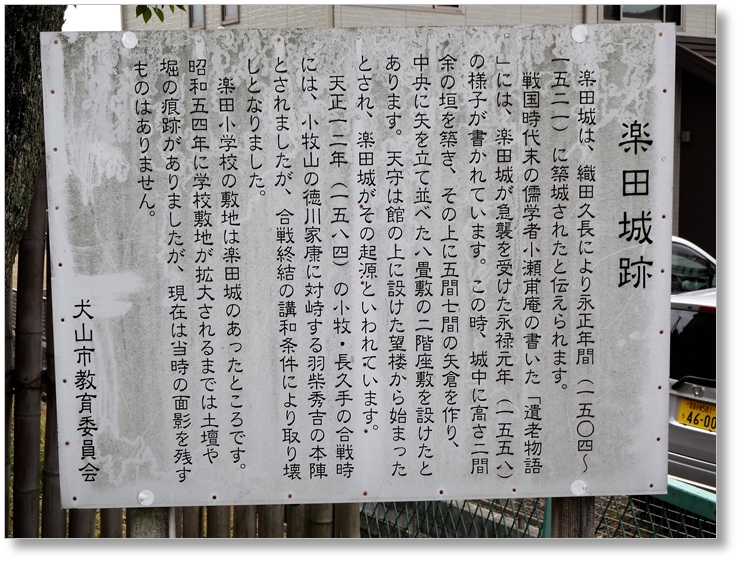 楽田城跡
楽田城は、織田久長により永正年間（一五〇四～
一五二一）に築城されたと伝えられます。
戦国時代末の儒学者小瀬甫庵の書いた「遺老物語
」には、楽田城が急襲を受けた永禄元年（一五五八）
の様子が書かれています。この時、城中に高さ二間
余の垣を築き、その上に五間七間の矢倉を作り、
中央に矢を立て並べた八畳敷の二階座敷を設けたと
あります。天守は館の上に設けた望楼から始まった
とされ、楽田城がその起源といわれています。
天正一二年（一五八四）の小牧・長久手の合戦時
には、小牧山の徳川家康に対峙する羽柴秀吉の本陣
とされましたが、合戦終結の講和条件により取り壊
しとなりました。
楽田小学校の敷地は楽田城のあったところです。
昭和五四年に学校敷地が拡大されるまでは土壇や
堀の痕跡がありましたが、現在は当時の面影を残す
ものはありません。
犬山市教育委員会
46-00